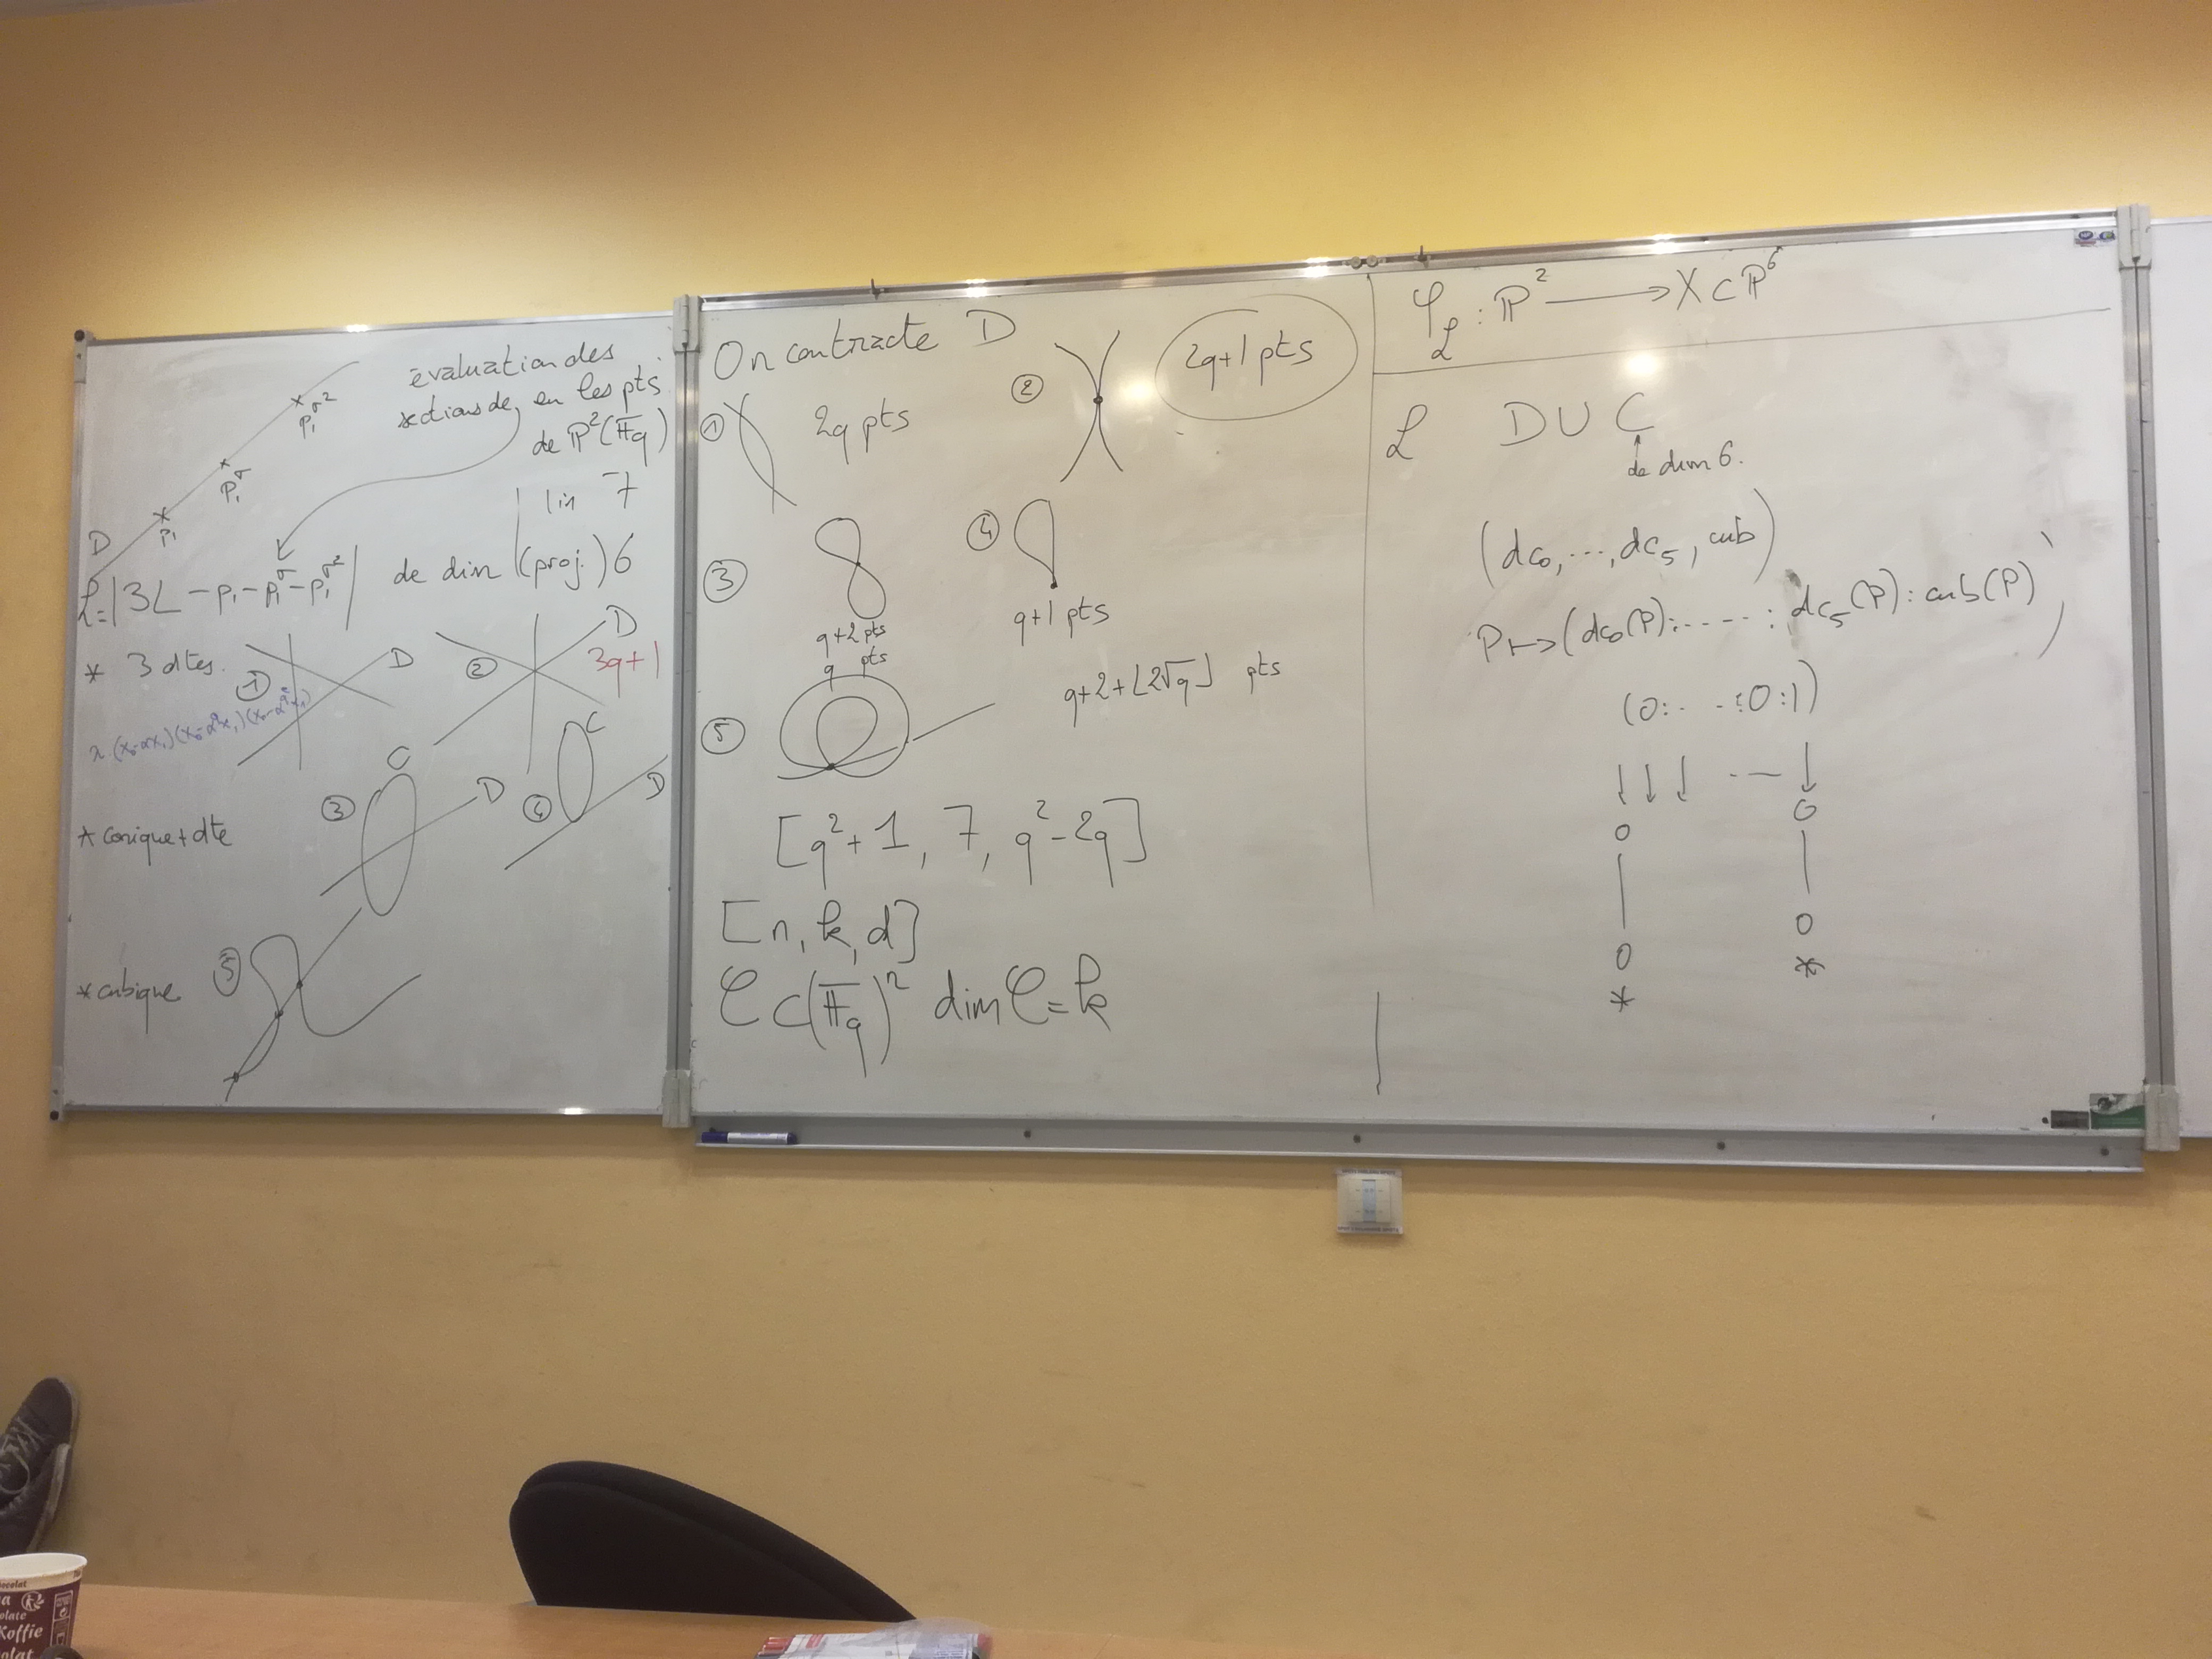 évaluation des
sections de, en les pts
de P²(𝔽q)
p₁^σ²
p₁^σ
p₁
D
lin 7
ℒ=|3L - p₁ - p₁^σ - p₁^σ²| de dim (proj.) 6
* 3 dtes.
① D
② D
3q+1
* conique + dte
③ C D
④ C D
* cubique ⑤
On contracte D
① 2q pts
② 2q+1 pts
③ q+2 pts
q pts
④ q+1 pts
⑤ q+2+⌊2√q⌋ pts
[q²+1, 7, q²-2q]
[n, k, d]
𝒞 ⊂ (𝔽q)ⁿ dim 𝒞 = k
φ_ℒ : P² ⟶ X ⊂ P⁶
ℒ D ∪ C
↑
de dim 6.
(dc₀, ..., dc₅, cub)
P ↦ (dc₀(P): ..... : dc₅(P) : cub(P))
(0: . . : 0:1)
↓ ↓ ↓ . — ↓
0 0
| |
0 0
* *